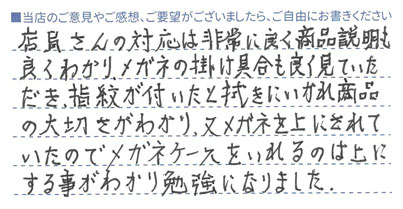 ■当店のご意見やご感想、ご要望がございましたら、ご自由にお書きください
店員さんの対応は非常に良く商品説明も
良くわかり、メガネの掛け具合も良く見ていた
だき、指紋が付いたと拭きにいかれ商品
の大切さがわかり、又メガネを上にされて
いたのでメガネケースをいれるのは上に
する事がわかり勉強になりました.